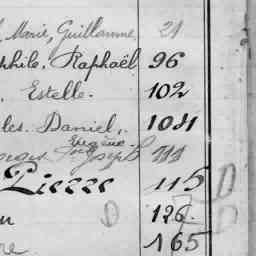 Marie, Guillaume 21
phile, Raphaël 96
Estelle. 102
les. Daniel, 104
Eugène
Joseph 111
Pierre 115 D
D 126
re 165